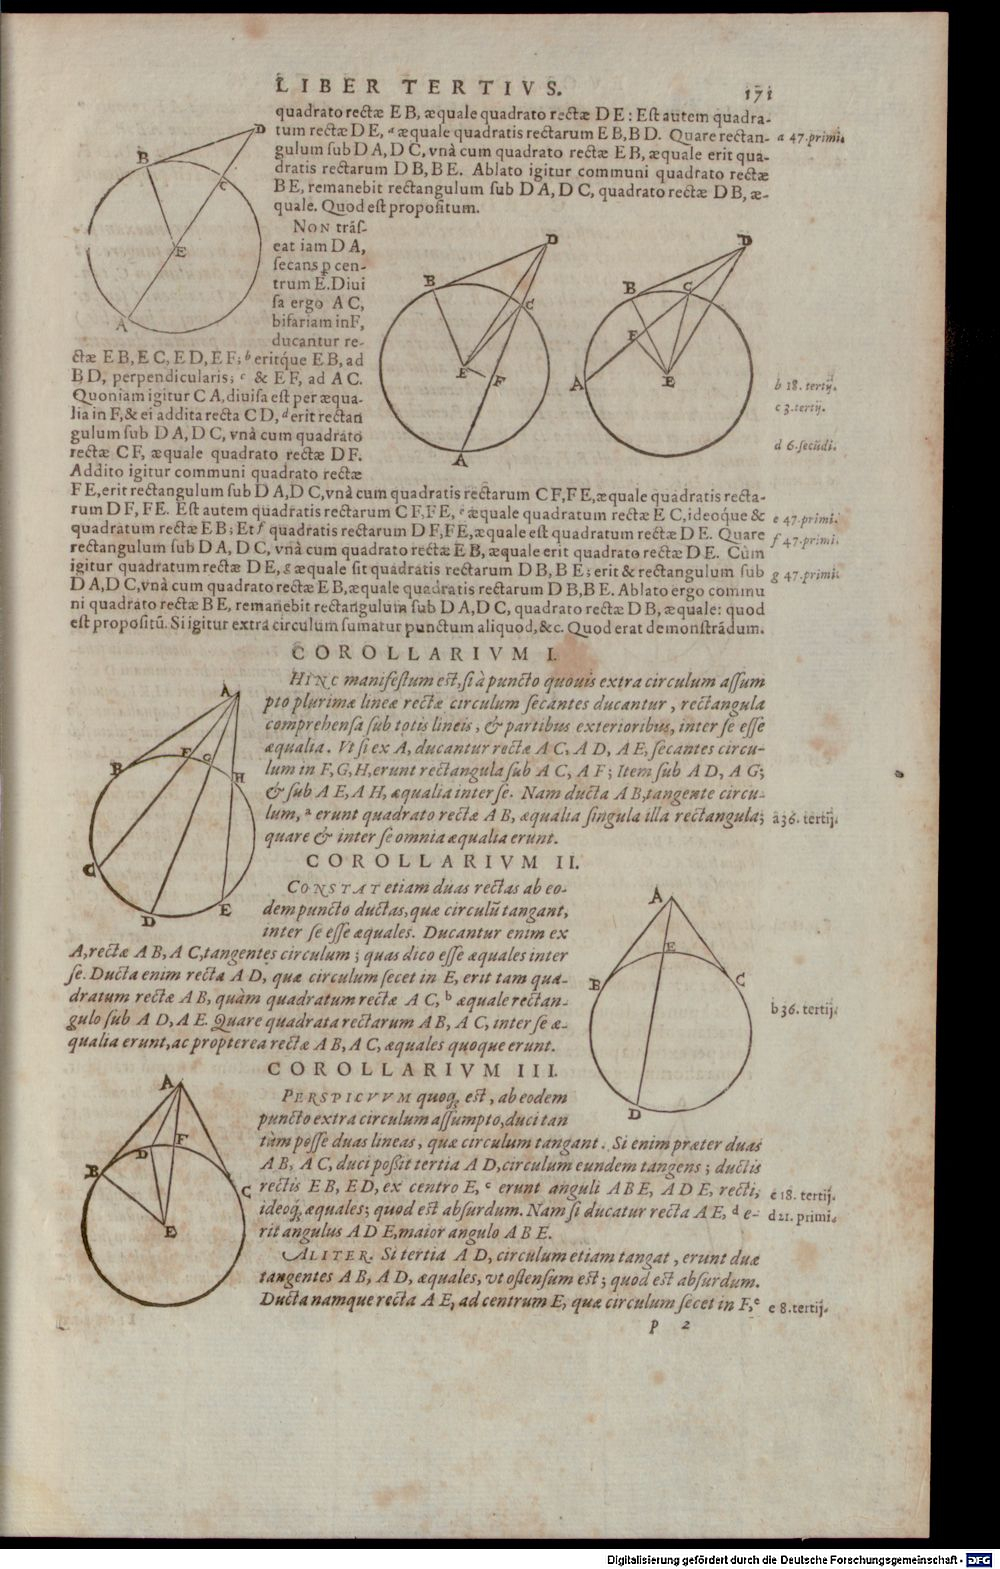 LIBER TERTIVS. 171
quadrato rectæ E B, æquale quadrato rectæ D E: Eſt autem quadra-
tum rectæ D E, ᵃ æquale quadratis rectarum E B, B D. Quare rectan-
a 47. primi.
gulum ſub D A, D C, vnà cum quadrato rectæ E B, æquale erit qua-
dratis rectarum D B, B E. Ablato igitur communi quadrato rectæ
B E, remanebit rectangulum ſub D A, D C, quadrato rectæ D B, æ-
quale. Quod eſt propoſitum.
D
B
C
E
A
NON trãſ-
eat iam D A,
ſecans ꝑ cen-
trum E. Diui
ſa ergo A C,
bifariam in F,
ducantur re-
ctæ E B, E C, E D, E F; ᵇ eritq́ue E B, ad
B D, perpendicularis; ᶜ & E F, ad A C.
Quoniam igitur C A, diuiſa eſt per æqua-
lia in F, & ei addita recta C D, ᵈ erit rectan
gulum ſub D A, D C, vnà cum quadrato
rectæ C F, æquale quadrato rectæ D F.
Addito igitur communi quadrato rectæ
D
B
C
E
F
A
D
B
C
F
A
E
b 18. tertij.
c 3. tertij.
d 6. ſecũdi.
F E, erit rectangulum ſub D A, D C, vnà cum quadratis rectarum C F, F E, æquale quadratis recta-
rum D F, F E. Eſt autem quadratis rectarum C F, F E, ᵉ æquale quadratum rectæ E C, ideoq́ue &
e 47. primi.
quadratum rectæ E B; Et ᶠ quadratis rectarum D F, F E, æquale eſt quadratum rectæ D E. Quare
f 47. primi.
rectangulum ſub D A, D C, vnà cum quadrato rectæ E B, æquale erit quadrato rectæ D E. Cùm
igitur quadratum rectæ D E, ᵍ æquale ſit quadratis rectarum D B, B E; erit & rectangulum ſub
g 47. primi.
D A, D C, vnà cum quadrato rectæ E B, æquale quadratis rectarum D B, B E. Ablato ergo commu
ni quadrato rectæ B E, remanebit rectangulum ſub D A, D C, quadrato rectæ D B, æquale: quod
eſt propoſitũ. Si igitur extra circulum ſumatur punctum aliquod, &c. Quod erat demonſtrãdum.
COROLLARIVM I.
HINC manifeſtum eſt, ſi à puncto quouis extra circulum aſſum
pto plurimæ lineæ rectæ circulum ſecantes ducantur, rectangula
comprehenſa ſub totis lineis, & partibus exterioribus, inter ſe eſſe
æqualia. Vt ſi ex A, ducantur rectæ A C, A D, A E, ſecantes circu-
lum in F, G, H, erunt rectangula ſub A C, A F; Item ſub A D, A G;
& ſub A E, A H, æqualia inter ſe. Nam ducta A B, tangente circu-
lum, ᵃ erunt quadrato rectæ A B, æqualia ſingula illa rectangula;
a 36. tertij.
quare & inter ſe omnia æqualia erunt.
A
F
G
B
H
C
E
D
COROLLARIVM II.
CONSTAT etiam duas rectas ab eo-
dem puncto ductas, quæ circulũ tangant,
inter ſe eſſe æquales. Ducantur enim ex
A, rectæ A B, A C, tangentes circulum; quas dico eſſe æquales inter
ſe. Ducta enim recta A D, quæ circulum ſecet in E, erit tam qua-
dratum rectæ A B, quàm quadratum rectæ A C, ᵇ æquale rectan-
b 36. tertij.
gulo ſub A D, A E. Quare quadrata rectarum A B, A C, inter ſe æ-
qualia erunt, ac propterea rectæ A B, A C, æquales quoque erunt.
A
E
B
C
D
COROLLARIVM III.
PERSPICVVM quoq; eſt, ab eodem
puncto extra circulum aſſumpto, duci tan
tùm poſſe duas lineas, quæ circulum tangant. Si enim præter duas
A B, A C, duci poßit tertia A D, circulum eundem tangens; ductis
rectis E B, E D, ex centro E, ᶜ erunt anguli A B E, A D E, recti,
c 18. tertij.
ideoq; æquales; quod eſt abſurdum. Nam ſi ducatur recta A E, ᵈ e-
d 21. primi.
rit angulus A D E, maior angulo A B E.
ALITER. Si tertia A D, circulum etiam tangat, erunt duæ
tangentes A B, A D, æquales, vt oſtenſum eſt; quod eſt abſurdum.
Ducta namque recta A E, ad centrum E, quæ circulum ſecet in F, ᵉ
e 8. tertij.
A
F
D
B
C
E
p 2
Digitalisierung gefördert durch die Deutsche Forschungsgemeinschaft - DFG